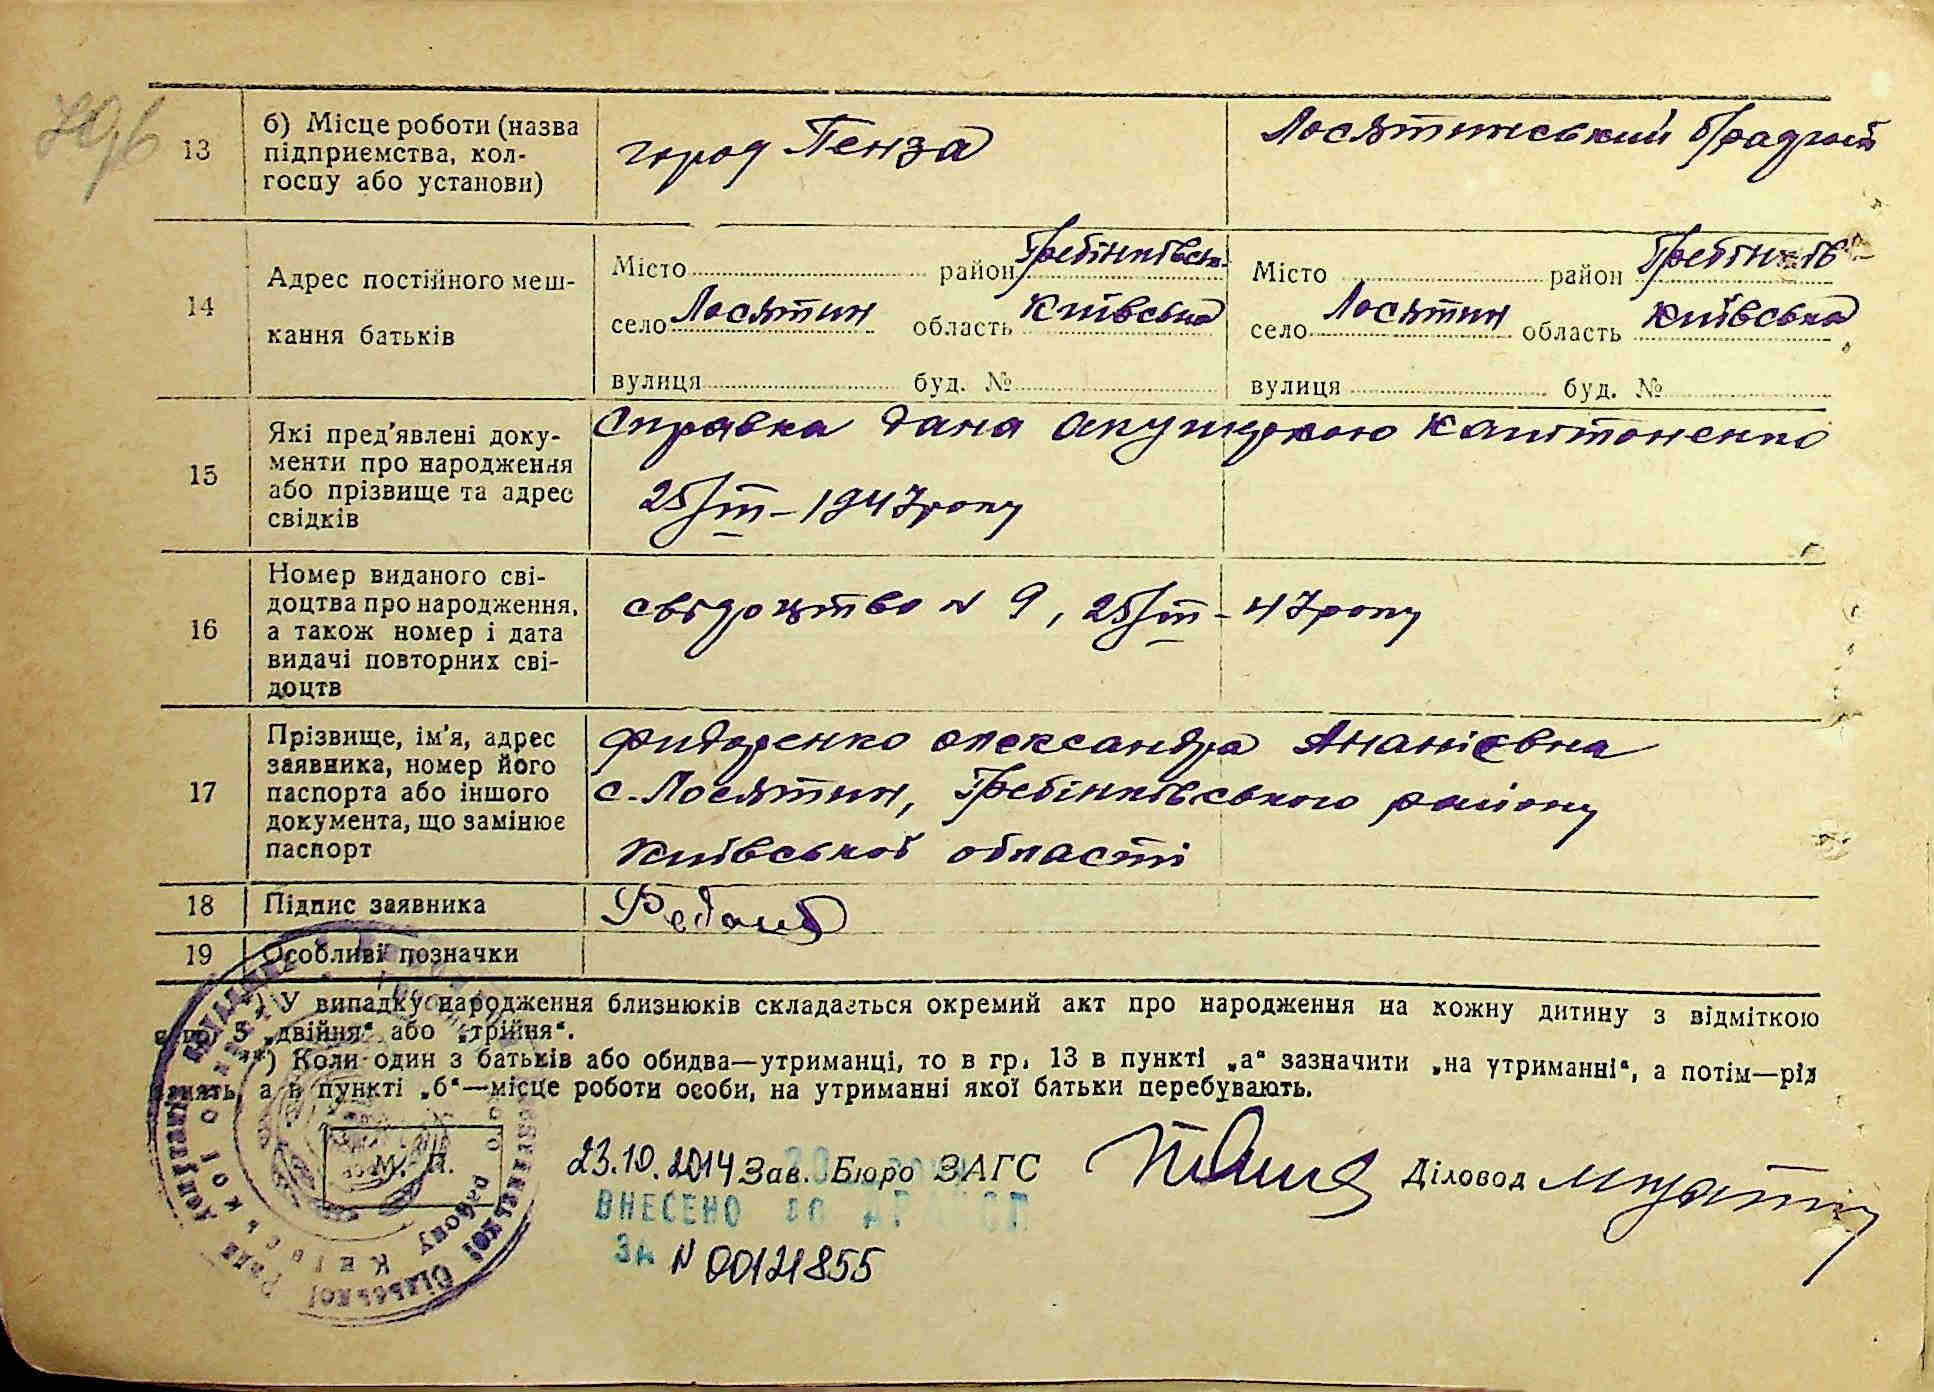 13
б) Місце роботи (назва
підприємства, кол-
госпу або установи)
город Пенза
Лосятинський б/радгосп
14
Адрес постійного меш-
кання батьків
Місто район Гребінківськ.
село Лосятин область Київська
вулиця буд. №
Місто район Гребінків
село Лосятин область Київська
вулиця буд. №
15
Які пред'явлені доку-
менти про народження
або прізвище та адрес
свідків
Справка дана акушеркою Капітоненко
25/III – 1947 року
16
Номер виданого сві-
доцтва про народження,
а також номер і дата
видачі повторних сві-
доцтв
свідоцтво № 9, 25/III – 47 року
17
Прізвище, ім'я, адрес
заявника, номер його
паспорта або іншого
документа, що замінює
паспорт
Фидоренко Олександра Ананієвна
с. Лосятин, Гребінківського району
Київської області
18
Підпис заявника
19
Особливі позначки
*) У випадку народження близнюків складається окремий акт про народження на кожну дитину з відміткою
в гр. 3 „двійня“ або „трійня“.
**) Коли один з батьків або обидва—утриманці, то в гр. 13 в пункті „а“ зазначити „на утриманні“, а потім—рід
занять, а в пункті „б“—місце роботи особи, на утриманні якої батьки перебувають.
М. П.
23.10.2014 Зав. Бюро ЗАГС
Діловод
ВНЕСЕНО ДО
ЗА № 00121855